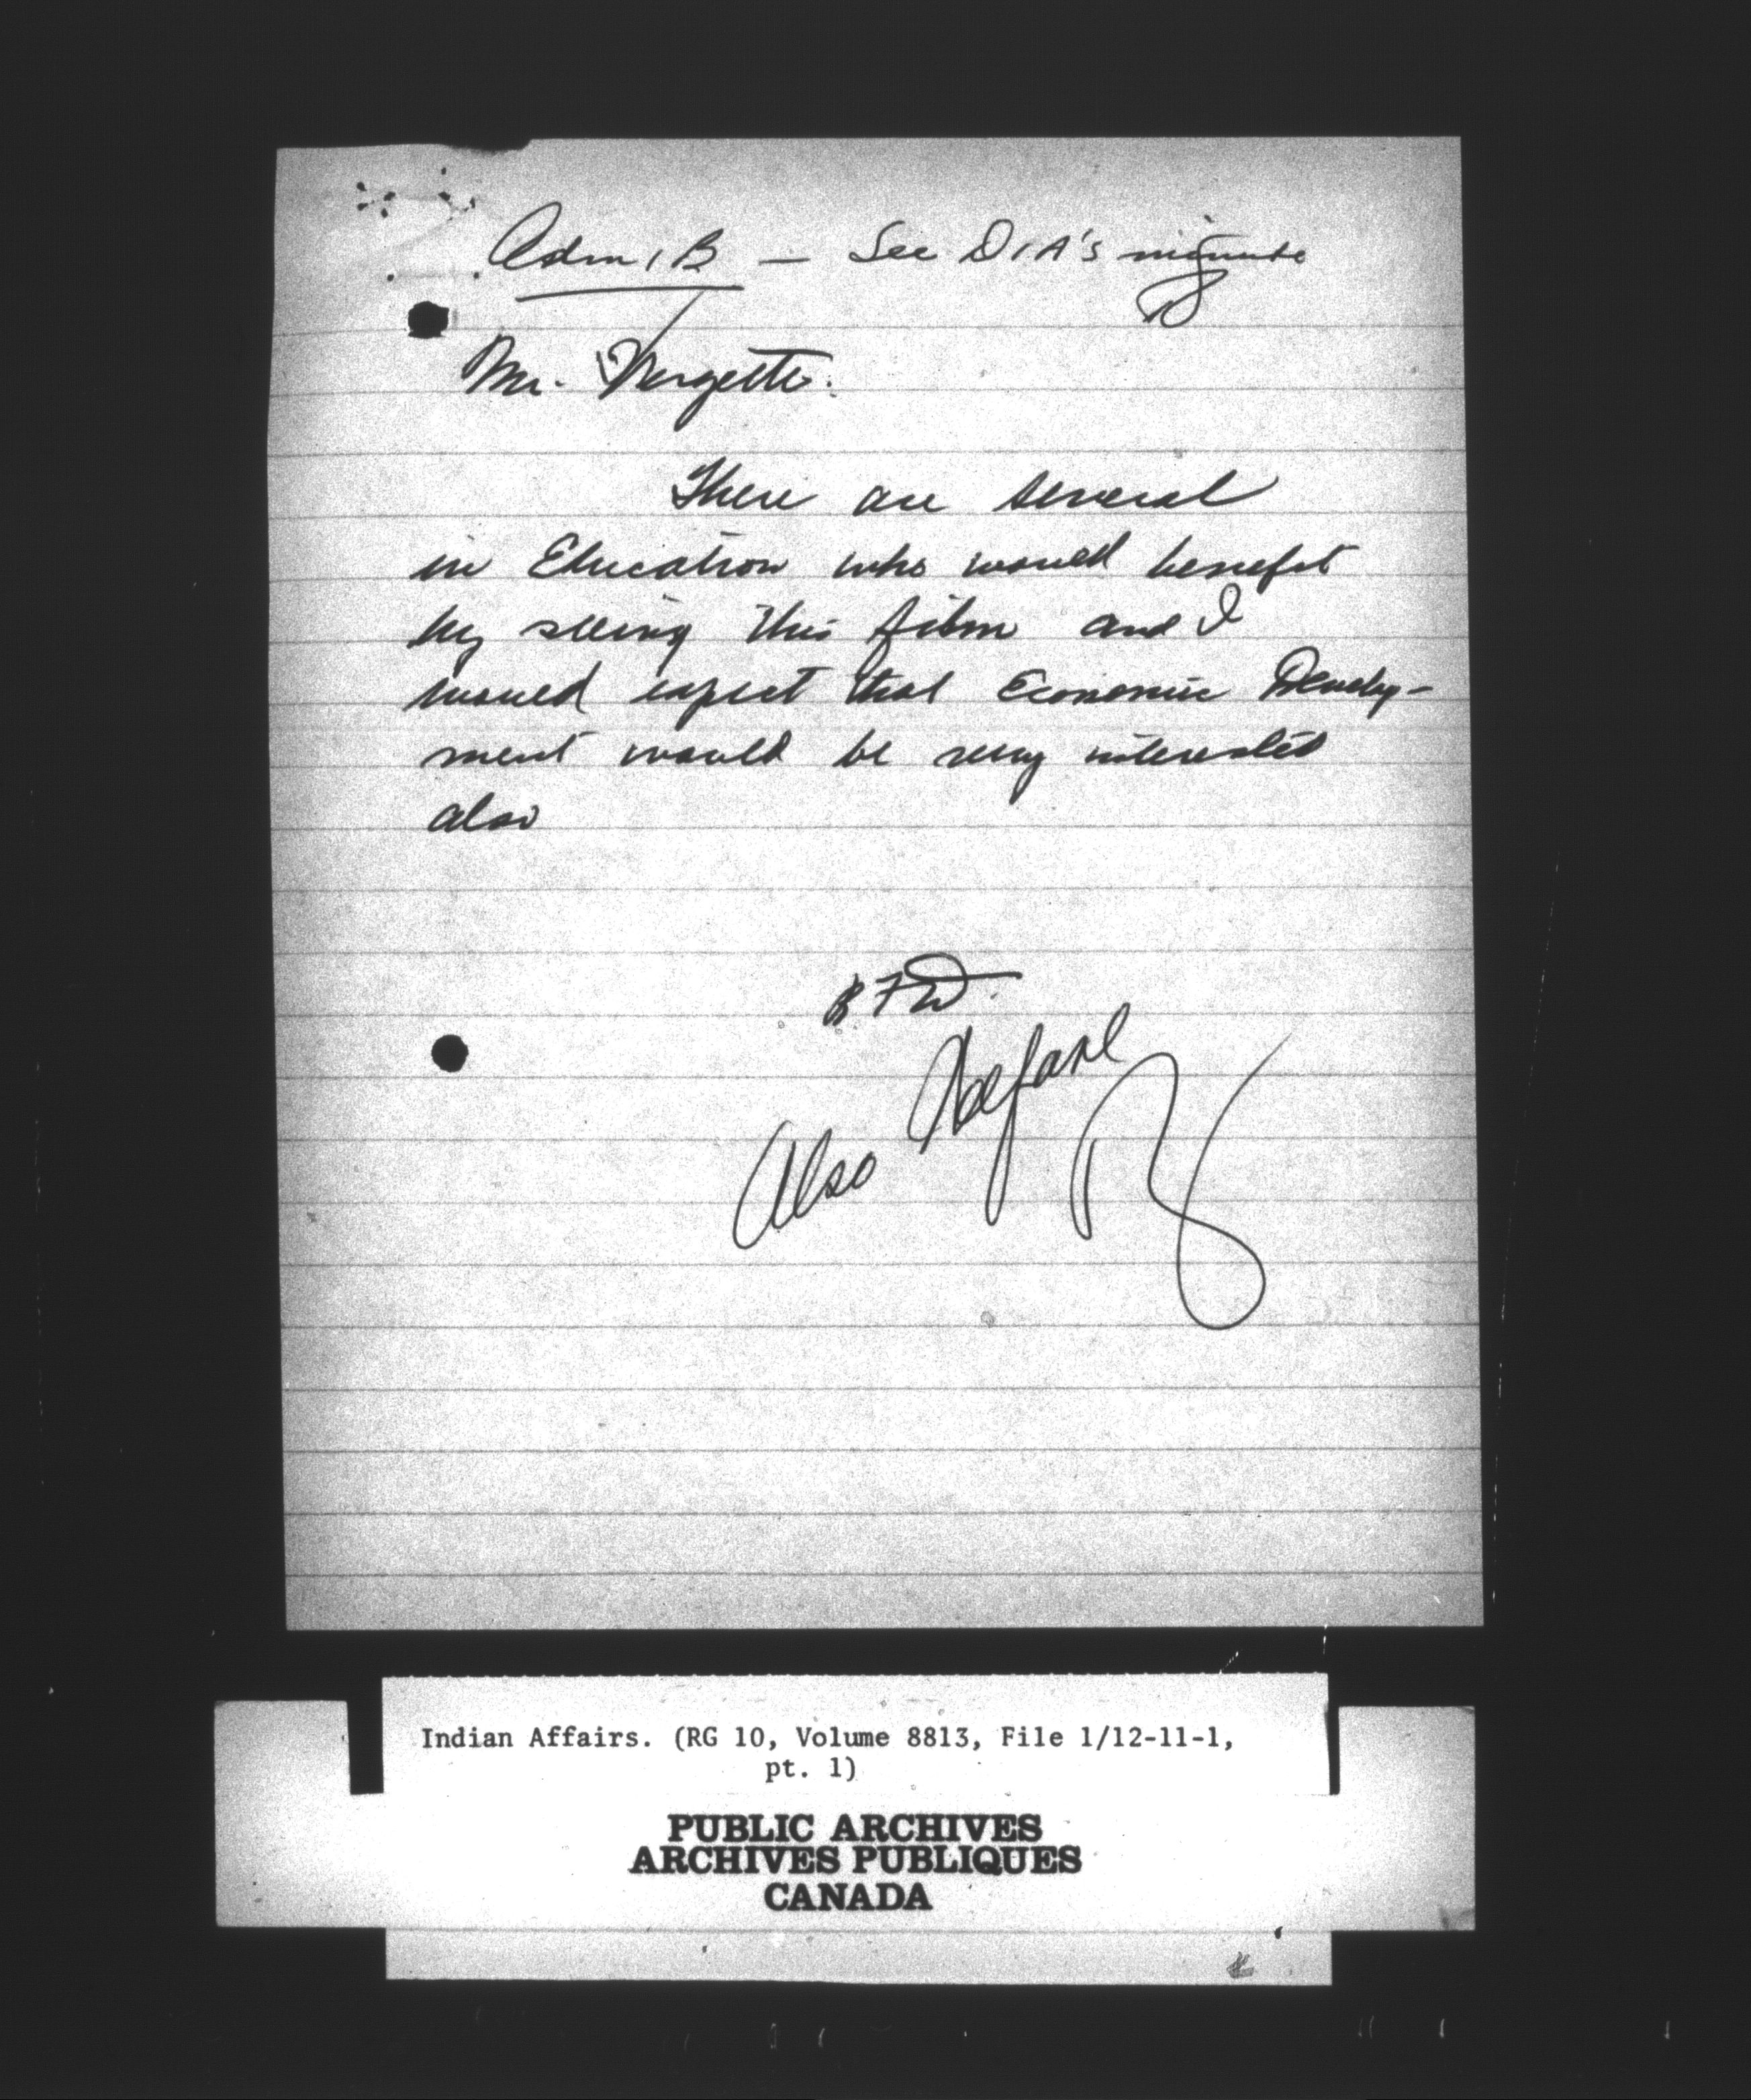 Adm, B — See DIA's minute
Mr. Vergette.
There are several
in Education who would benefit
by seeing this film and I
would expect that Economic Develop-
ment would be very interested
also
Also Welfare
Indian Affairs. (RG 10, Volume 8813, File 1/12-11-1,
pt. 1)
PUBLIC ARCHIVES
ARCHIVES PUBLIQUES
CANADA